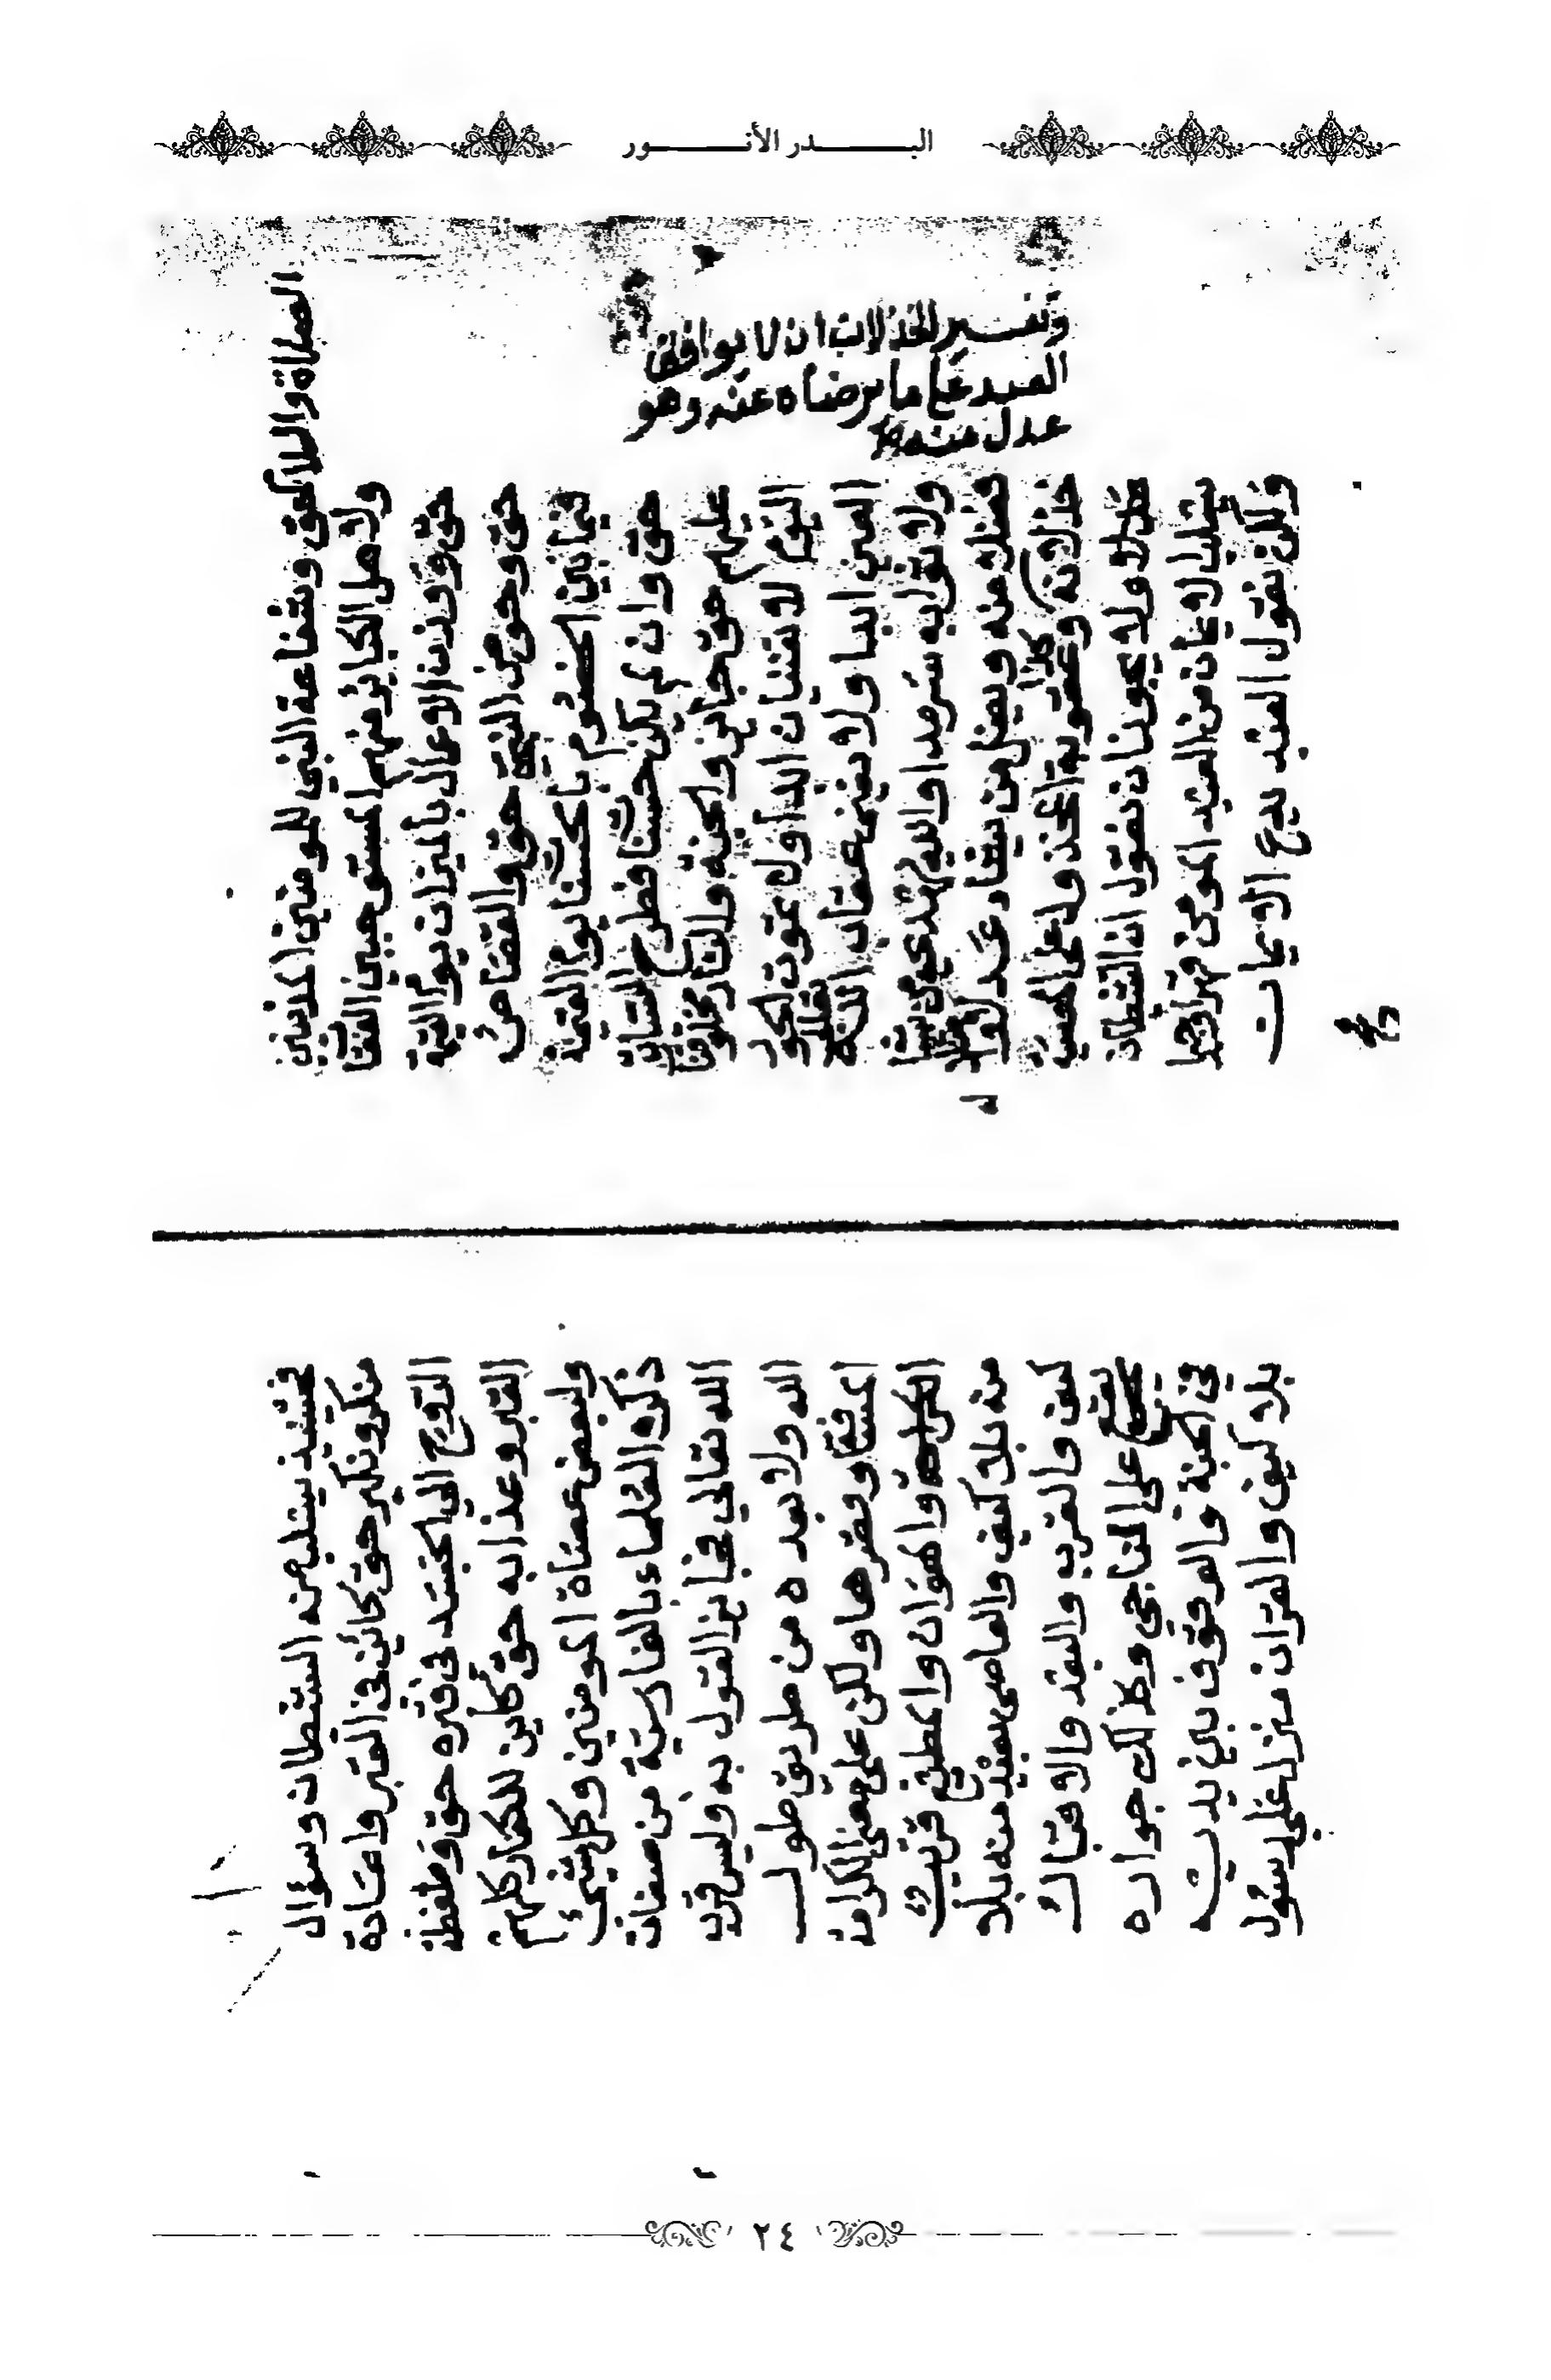 البـــــدر الأنـــــور
وتفسير الخذلان ان لا يوافق
العبد على ما يرضاه عنه وهو
عدل منه
الصلاة والسلا حق وشفاعة النبي للمومنين المذنبين
ولاهل الكبائر منهم المستوجبين العقا
حق ووزن الاعمال بالميزان يوم القيمة
حق وحوض النبي حق والقصاص
فيما بين الخصوم بالحسنات يوم القيمة
حق وان لم يكن حسنات فطرح السيات
عليهم حق جائز والجنة والنار مخلوقتا
اليوم لا تفنيان ابدا ولا تموت الحور
العين ابدا ولا يفنى عقاب الله تعالى
ولا ثوابه سرمدا والله يهدي من يشا
فضلا منه ويضل من يشاء عدلا
خذلانه وعقوبة المخذول على المعصية
كذا
ولا يجوز ان نقول ان الشيطان
يسلب الايمان من العبد المومن قهرا وجبرا
ولكن نقول العبد يدع الايمان
فحينئذ يسلب منه الشيطان وسؤال
منكر ونكير حق كائن في القبر واعادة
الروح الى الجسد في قبره حق وضغطة
القبر وعذابه حق كاين للكفار كلهم
ولبعض عصاة المومنين وكل شيئ
ذكره العلماء بالفارسية من صفات
الله تعالى فجايز القول به وليس قرب
الله ولا بعده من طريق طول
المسافة وقصرها ولكن على معنى الكرامة
والهوان والمطيع قريب
منه بلا كيف والعاصي بعيد منه بلا
كيف والقرب والبعد والاقبال
يقع على المناجي وكذلك جواره
في الجنة والوقوف بين يديه
بلا كيف والقران منزل على رسول
٢٤